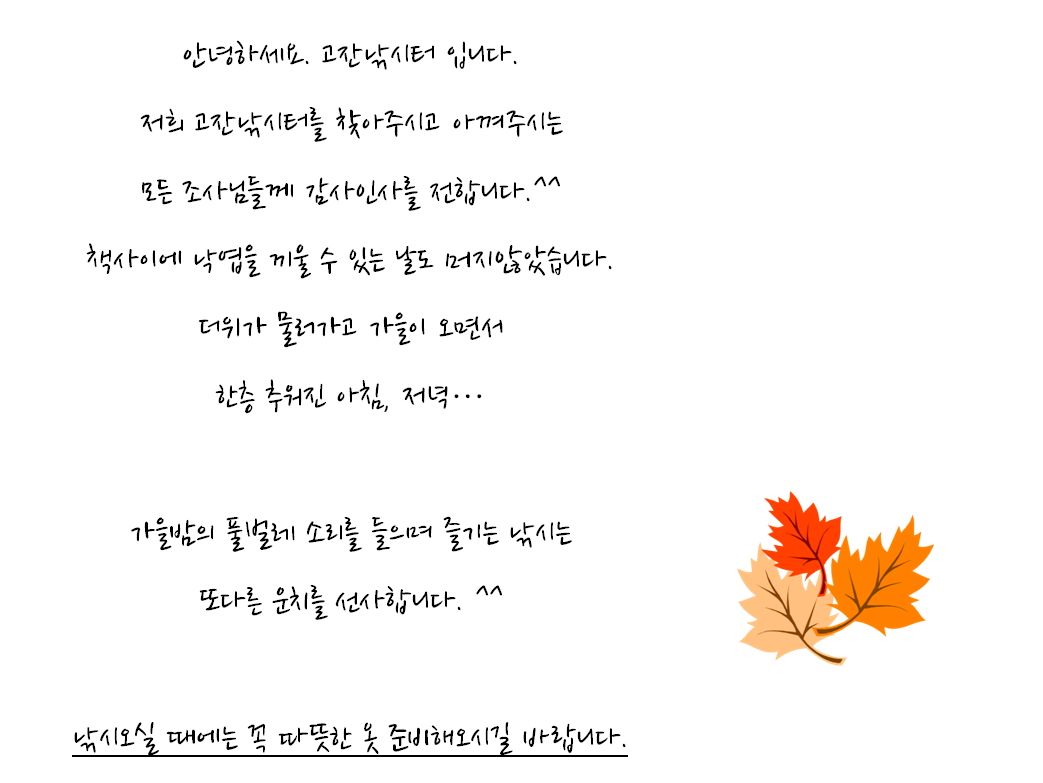 안녕하세요. 고잔낚시터 입니다.
저희 고잔낚시터를 찾아주시고 아껴주시는
모든 조사님들께 감사인사를 전합니다.^^
책사이에 낙엽을 끼울 수 있는 날도 머지않았습니다.
더위가 물러가고 가을이 오면서
한층 추워진 아침, 저녁···
가을밤의 풀벌레 소리를 들으며 즐기는 낚시는
또다른 운치를 선사합니다. ^^
낚시오실 때에는 꼭 따뜻한 옷 준비해오시길 바랍니다.